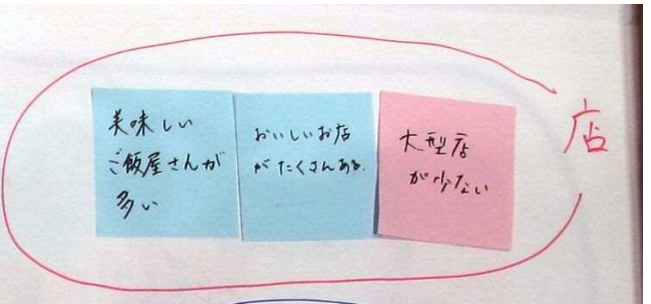 美味しい
ご飯屋さんが
多い
おいしいお店
がたくさんある.
大型店
が少ない
店